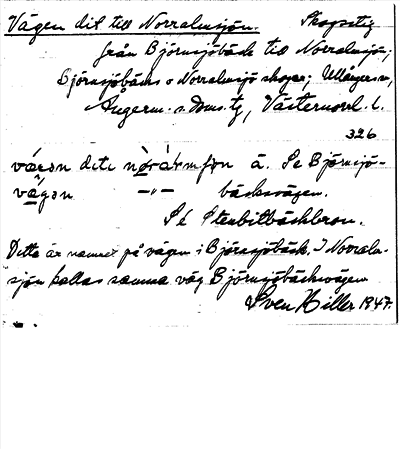 Vägen dit till Norralmsjön. Skogsstig
från Björnsjöbäck till Norralmsjö;
Björnsjöbäcks o Norralmsjö skogar; Ullångers sn,
Ångerm. s. Doms. tg, Västernorrl. l.
326
vä̀gən
Se Björnsjö-
bäcksvägen.
Sé Stenbitbäckbron.
Detta är namnet på vägen i Björnsjöbäck. I Norralm-
sjön kallas samma väg Björnsjöbäckvägen
Sven Hiller 1947.